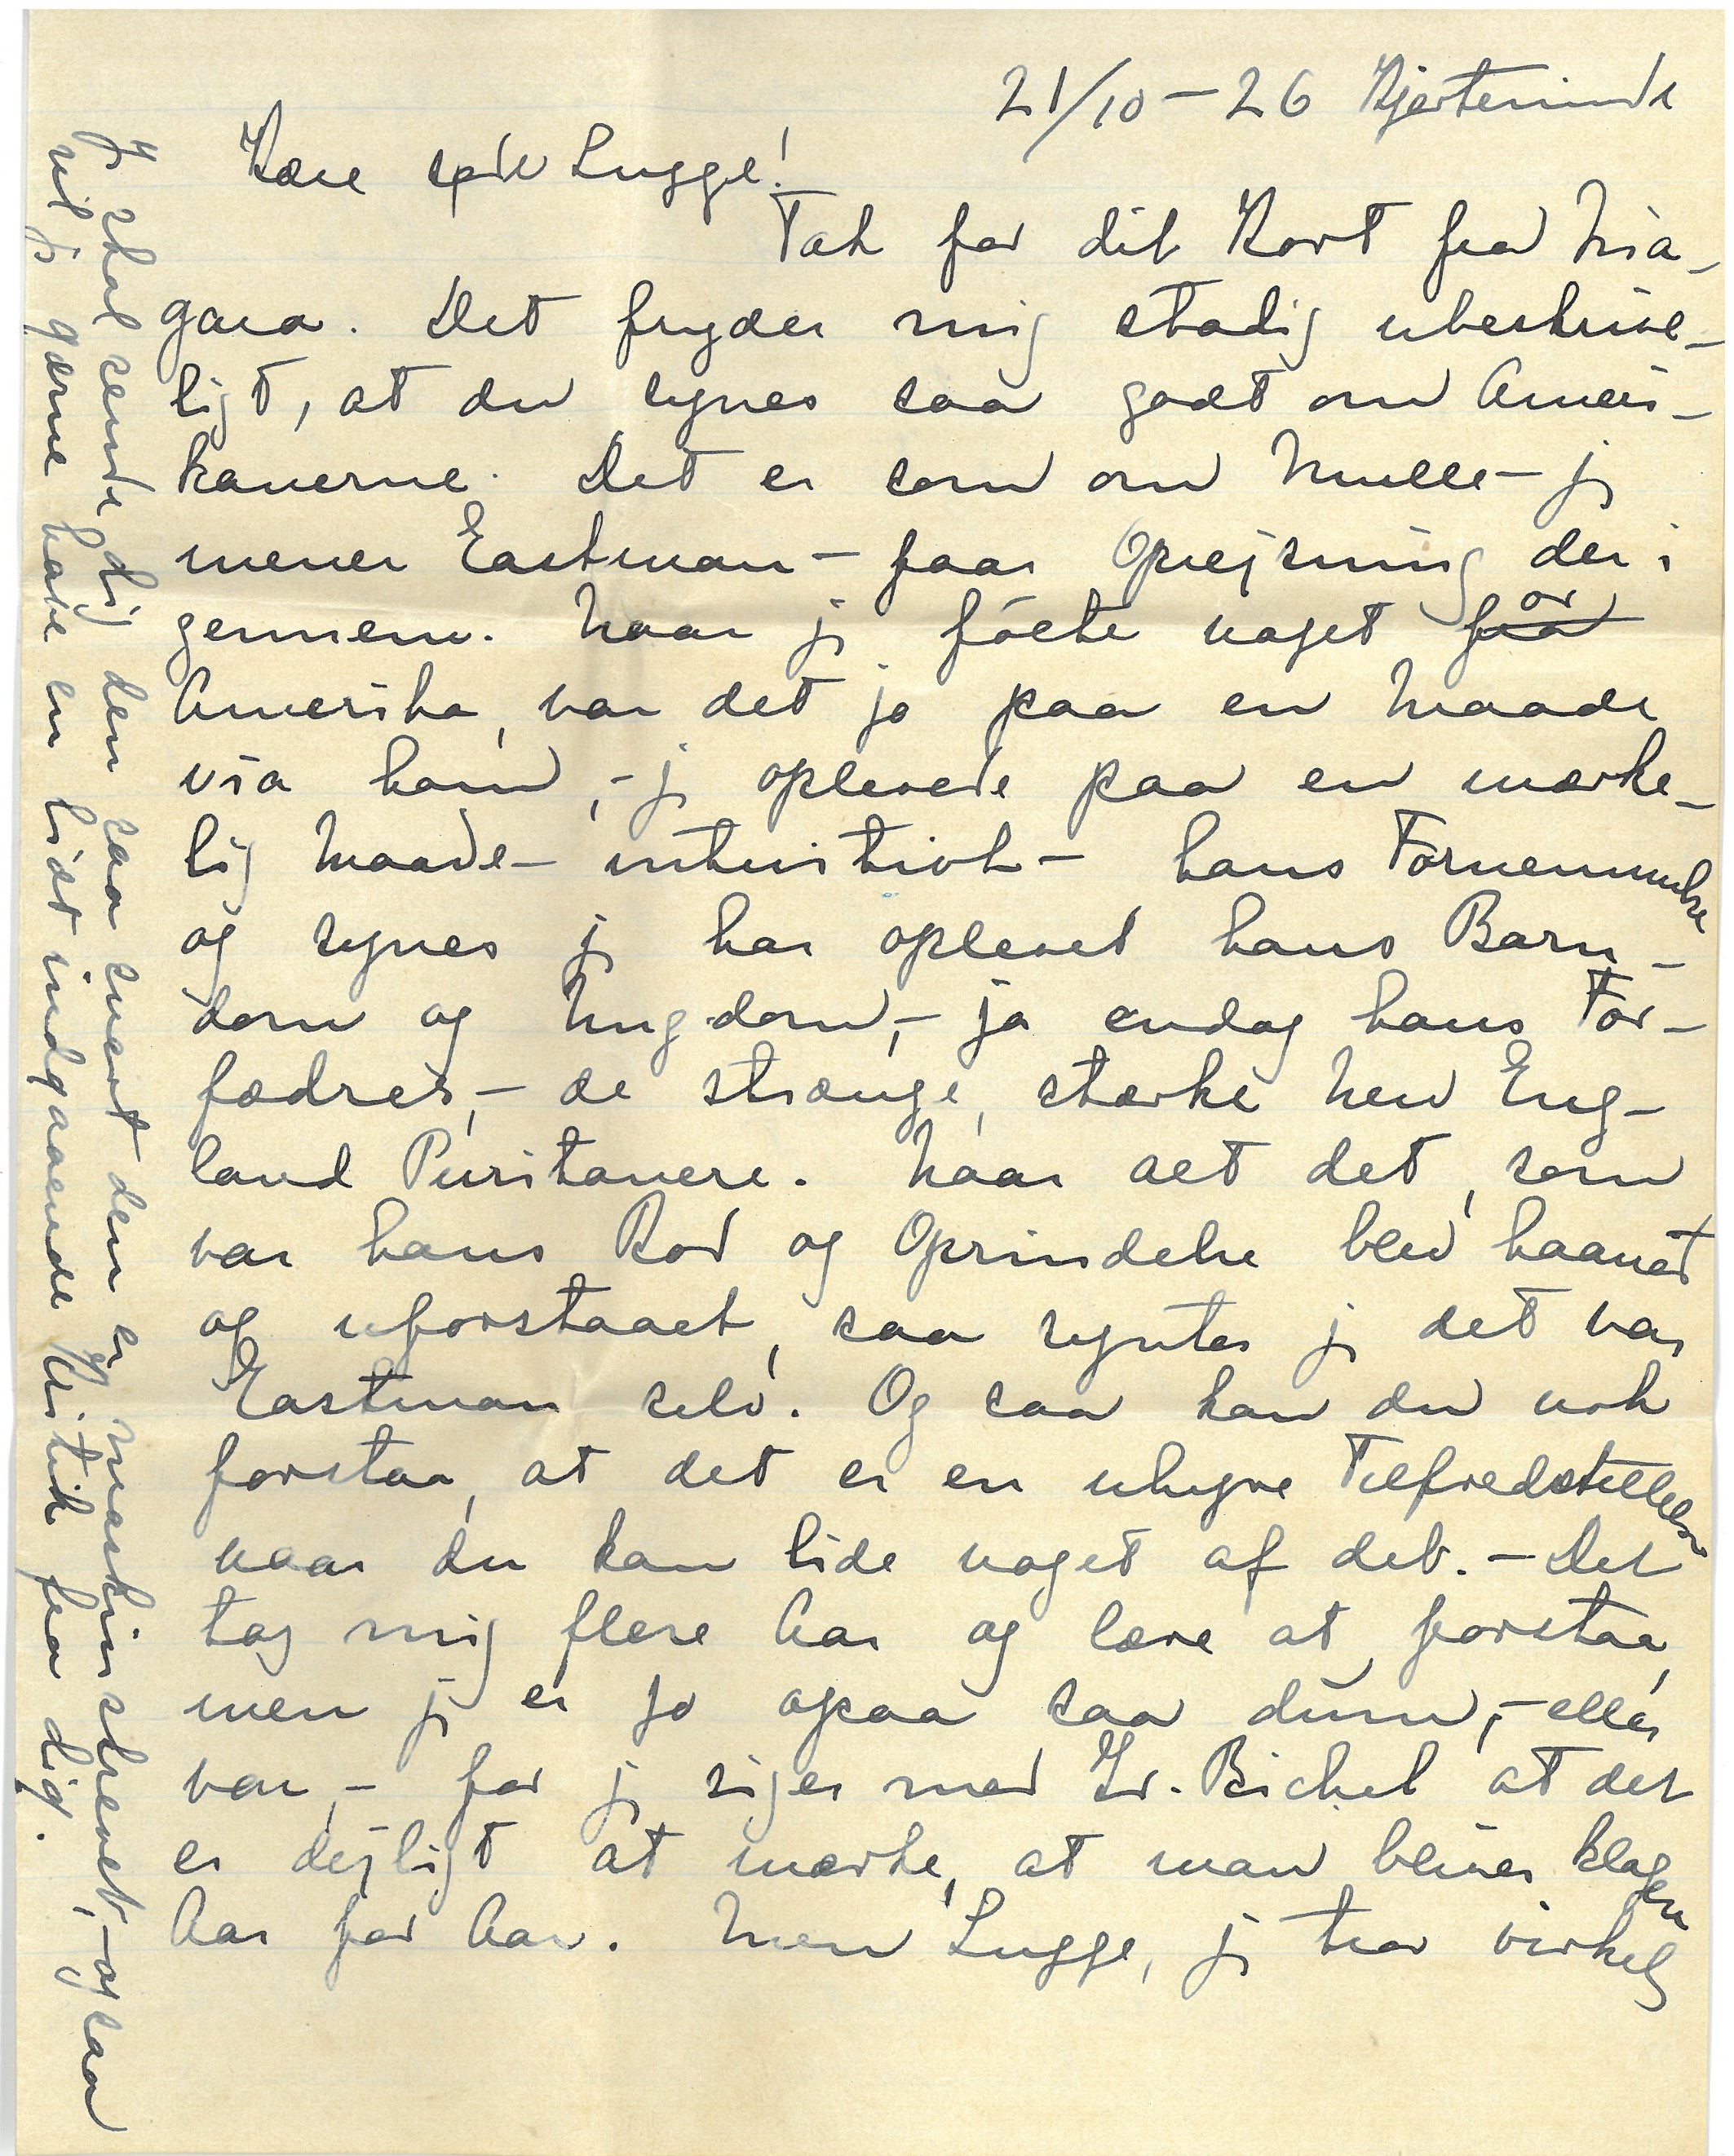 21/10-26 Kjerteminde
Kære søde Lugge!
Tak for dit Kort fra Nia-
gara. Det fryder mig stadig ubeskrive-
ligt, at du synes saa godt om Ameri-
kanerne. Det er som om Mulle - jeg
mener Eastman - faar Oprejsning der i
gennem. Naar jeg følte noget fra or
Amerika, var det jo paa en Maade
via ham, - jeg oplevede paa en mærke-
lig Maade - intuitivt - hans Fornemmelse
og synes jeg har oplevet hans Barn-
dom og Ungdom, - ja endog hans For-
fædres, - de strænge, stærke New Eng-
land Puritanere. Naar alt det, som
var hans Rod og Oprindelse blev haanet
og uforstaaet, saa syntes jeg det var
Eastman selv. Og saa kan du nok
forstaa, at det er en uhyre Tilfredstillelse
naar du kan lide noget af det. - Det
tog mig flere Aar og lære at forstaa,
men jeg er jo ogsaa saa dum, - eller
var, - for jeg siger med Fr. Bichel at det
er dejligt at mærke, at man bliver klogere
Aar for Aar. Men Lugge, jeg tror virkelig
Jeg skal sende dig den saa snart den er maskinskrevet, - og saa
vil jeg gærne have en lidt indgaaende Kritik fra dig.